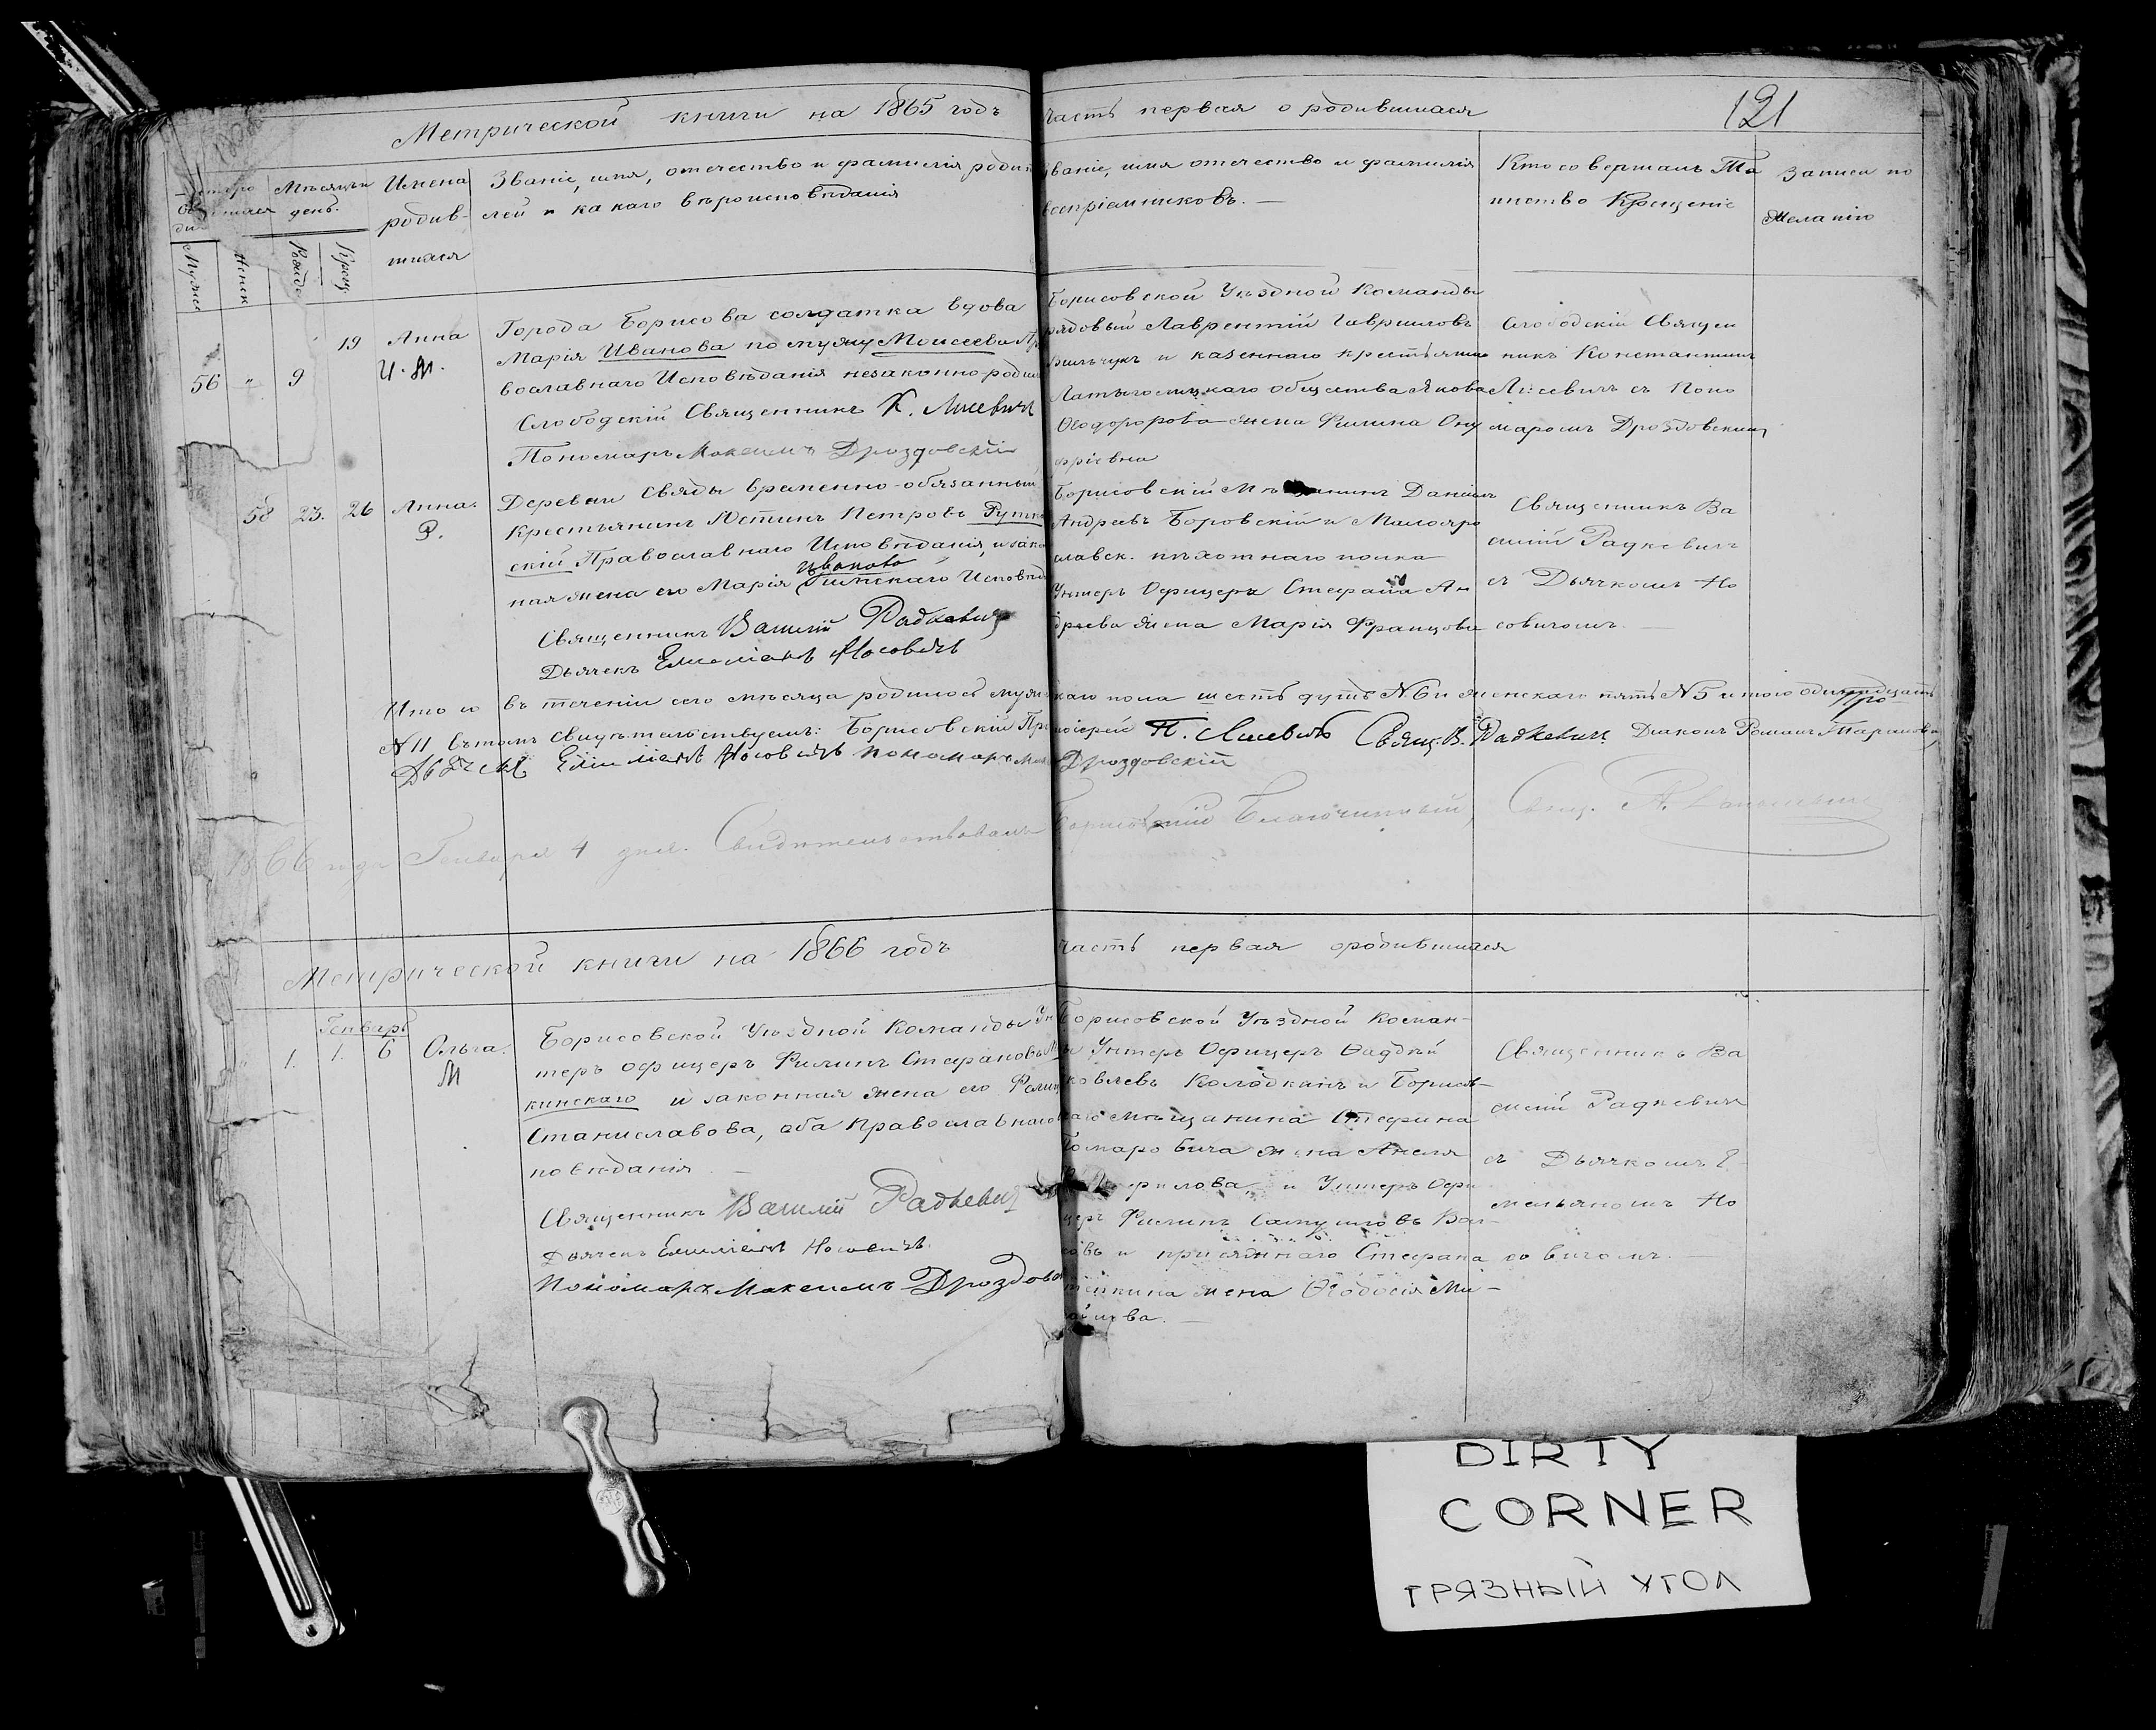 Метрической книги на 1865 годъ часть первая о родившихся
121
Мѣсяцъ и день.
Имена родив- шихся
Званіе, имя, отечество и фамилія родителей и какого вѣроисповѣданія
Званіе, имя отечество и фамилія воспріемниковъ. —
Кто совершалъ Та инство Крещенiе
Записи по желанію
Мужск
Женск
Рожде
Крещ.
56 " 9 19
Анна
Города Борисова солдатка вдова
Марія Иванова по мужу Моисеева Пр
вославнаго Исповѣданія незаконно-родил
Слободскій Священникъ К. Лисевичъ
Пономарь Максимъ Дроздовскій
Борисовской Уѣздной Команды
рядовый Лаврентій Гавриловъ
и казеннаго крестьянина
общества Якова
Ѳеодорова жена Филина Ону
фріевна
Слободскій Священ
никъ Константинъ
Лисевичъ съ Поно
маремъ Дроздовскимъ
58 23. 26
Анна.
Р.
Деревни Свяды временно-обязанный
Крестьянинъ Іустинъ Петровъ
скій Православнаго Исповѣданія, и зако
ная жена его Марія Исповѣд
Священникъ Василій Радкевичъ
Дьячекъ Емиліанъ Носовичъ
Борисовскій Даніилъ
Андреевъ Боровскій и Малояро
славск. пѣхотнаго полка
Унтеръ Офицера Стефана Ан
дреева жена Марія Францова
Священникъ Ва
силій Радкевичъ
съ Дьячкомъ Но
совичомъ. —
Итого въ теченіи сего мѣсяца родилось мужскаго пола шесть душъ N. 6 и женскаго пять N 5 итого одинадцать
N 11 въ томъ свидѣтельствуемъ: Борисовскій Протоіерей П. Лисевичъ Свящ. В. Радкевичъ. Діаконъ Романъ
Дьячекъ Емиліанъ Носовичъ Пономарь Дроздовскій
1866 года Генваря 4 дня. Свидѣтельствовалъ Борисовскій Благочинный, Свящ.
Метрической книги на 1866 годъ часть первая о родившихся
Генварь
1. 1. 6
Ольга.
М
Борисовской Уѣздной Команды Ун
теръ офицеръ Филипъ Стефановъ
кинскаго и законная жена его
Станиславова, оба Православнаго
повѣданія. —
Священникъ Василій Радкевичъ
Дьячекъ Емиліанъ Носовичъ.
Пономарь Максимъ Дроздовс
Борисовской Уѣздной Коман-
ды Унтеръ Офицеръ Ѳаддей
Колодкинъ и Борисов-
скаго мѣщанина Стефана
жена Анеля
и Унтеръ Офи
церъ Филипъ
и присяжнаго Стефана
жена Ѳеодосія Ми-
Священникъ Ва
силій Радкевичъ
съ Дьячкомъ Е-
мельяномъ Но
совичомъ.
DIRTY
CORNER
ГРЯЗНЫЙ УГОЛ